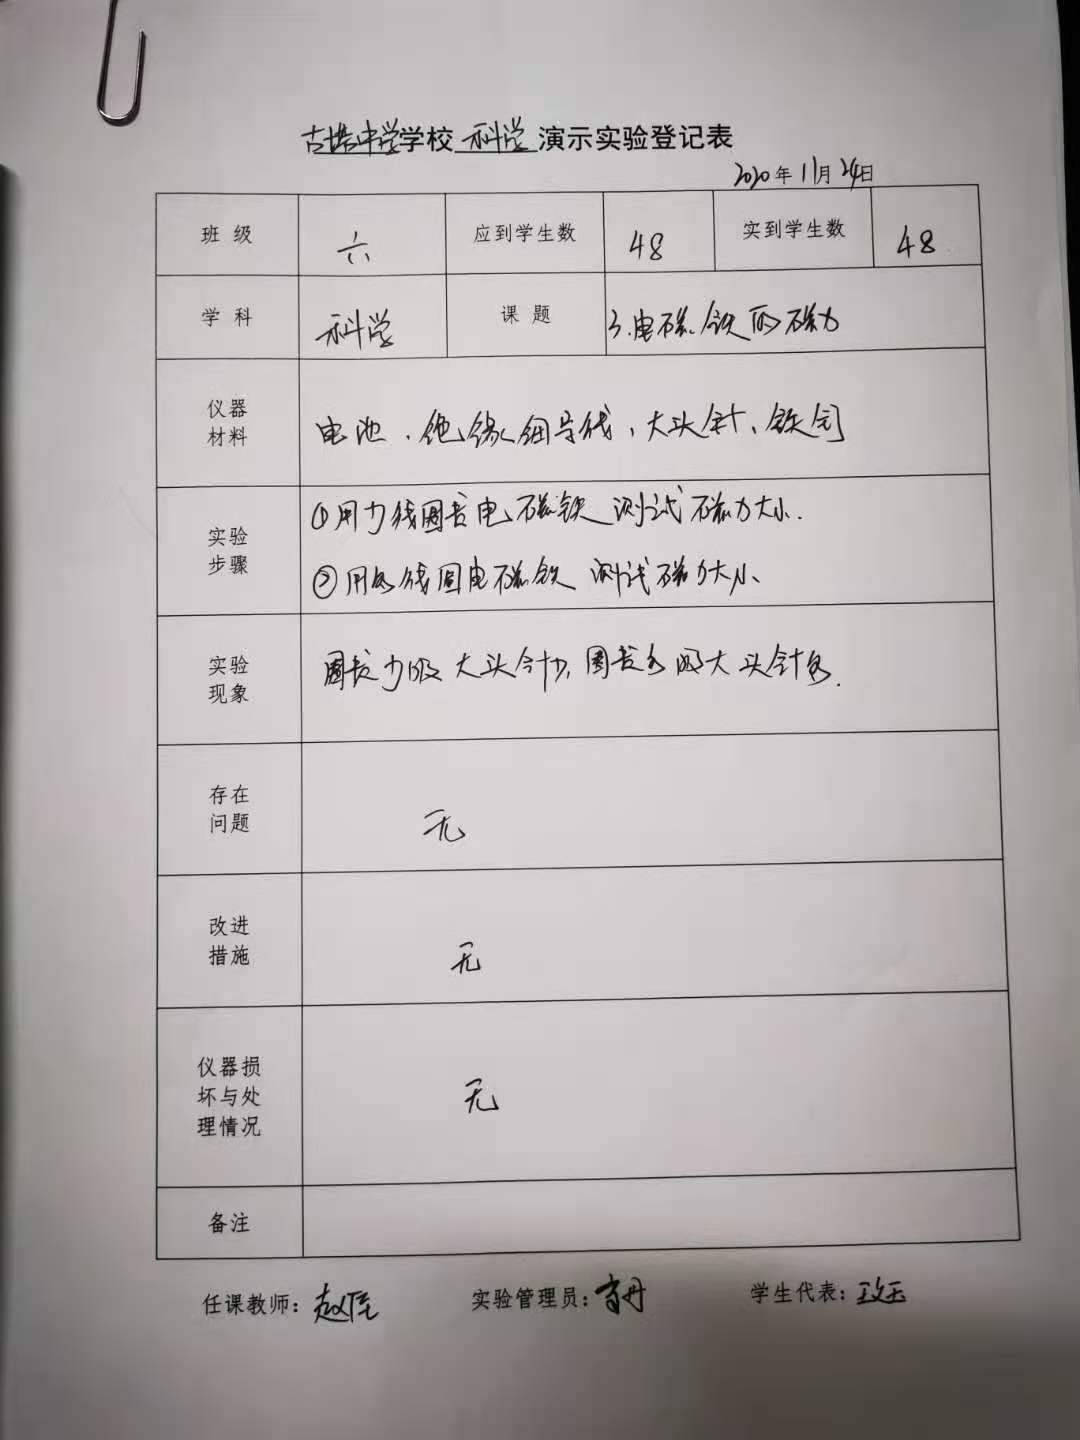 古塔中学学校 科学 演示实验登记表
2020年11月24日
班 级 六 应到学生数 48 实到学生数 48
学 科 科学 课 题 3.电磁铁的磁力
仪器
材料
电池、绝缘细导线、大头针、铁钉
实验
步骤
①用少线圈电磁铁测试磁力大小.
②用多线圈电磁铁测试磁力大小、
实验
现象
圈长少吸大头针少,圈长多吸大头针多.
存在
问题
无
改进
措施
无
仪器损
坏与处
理情况
无
备注
任课教师: 赵 实验管理员: 丹 学生代表: 玉